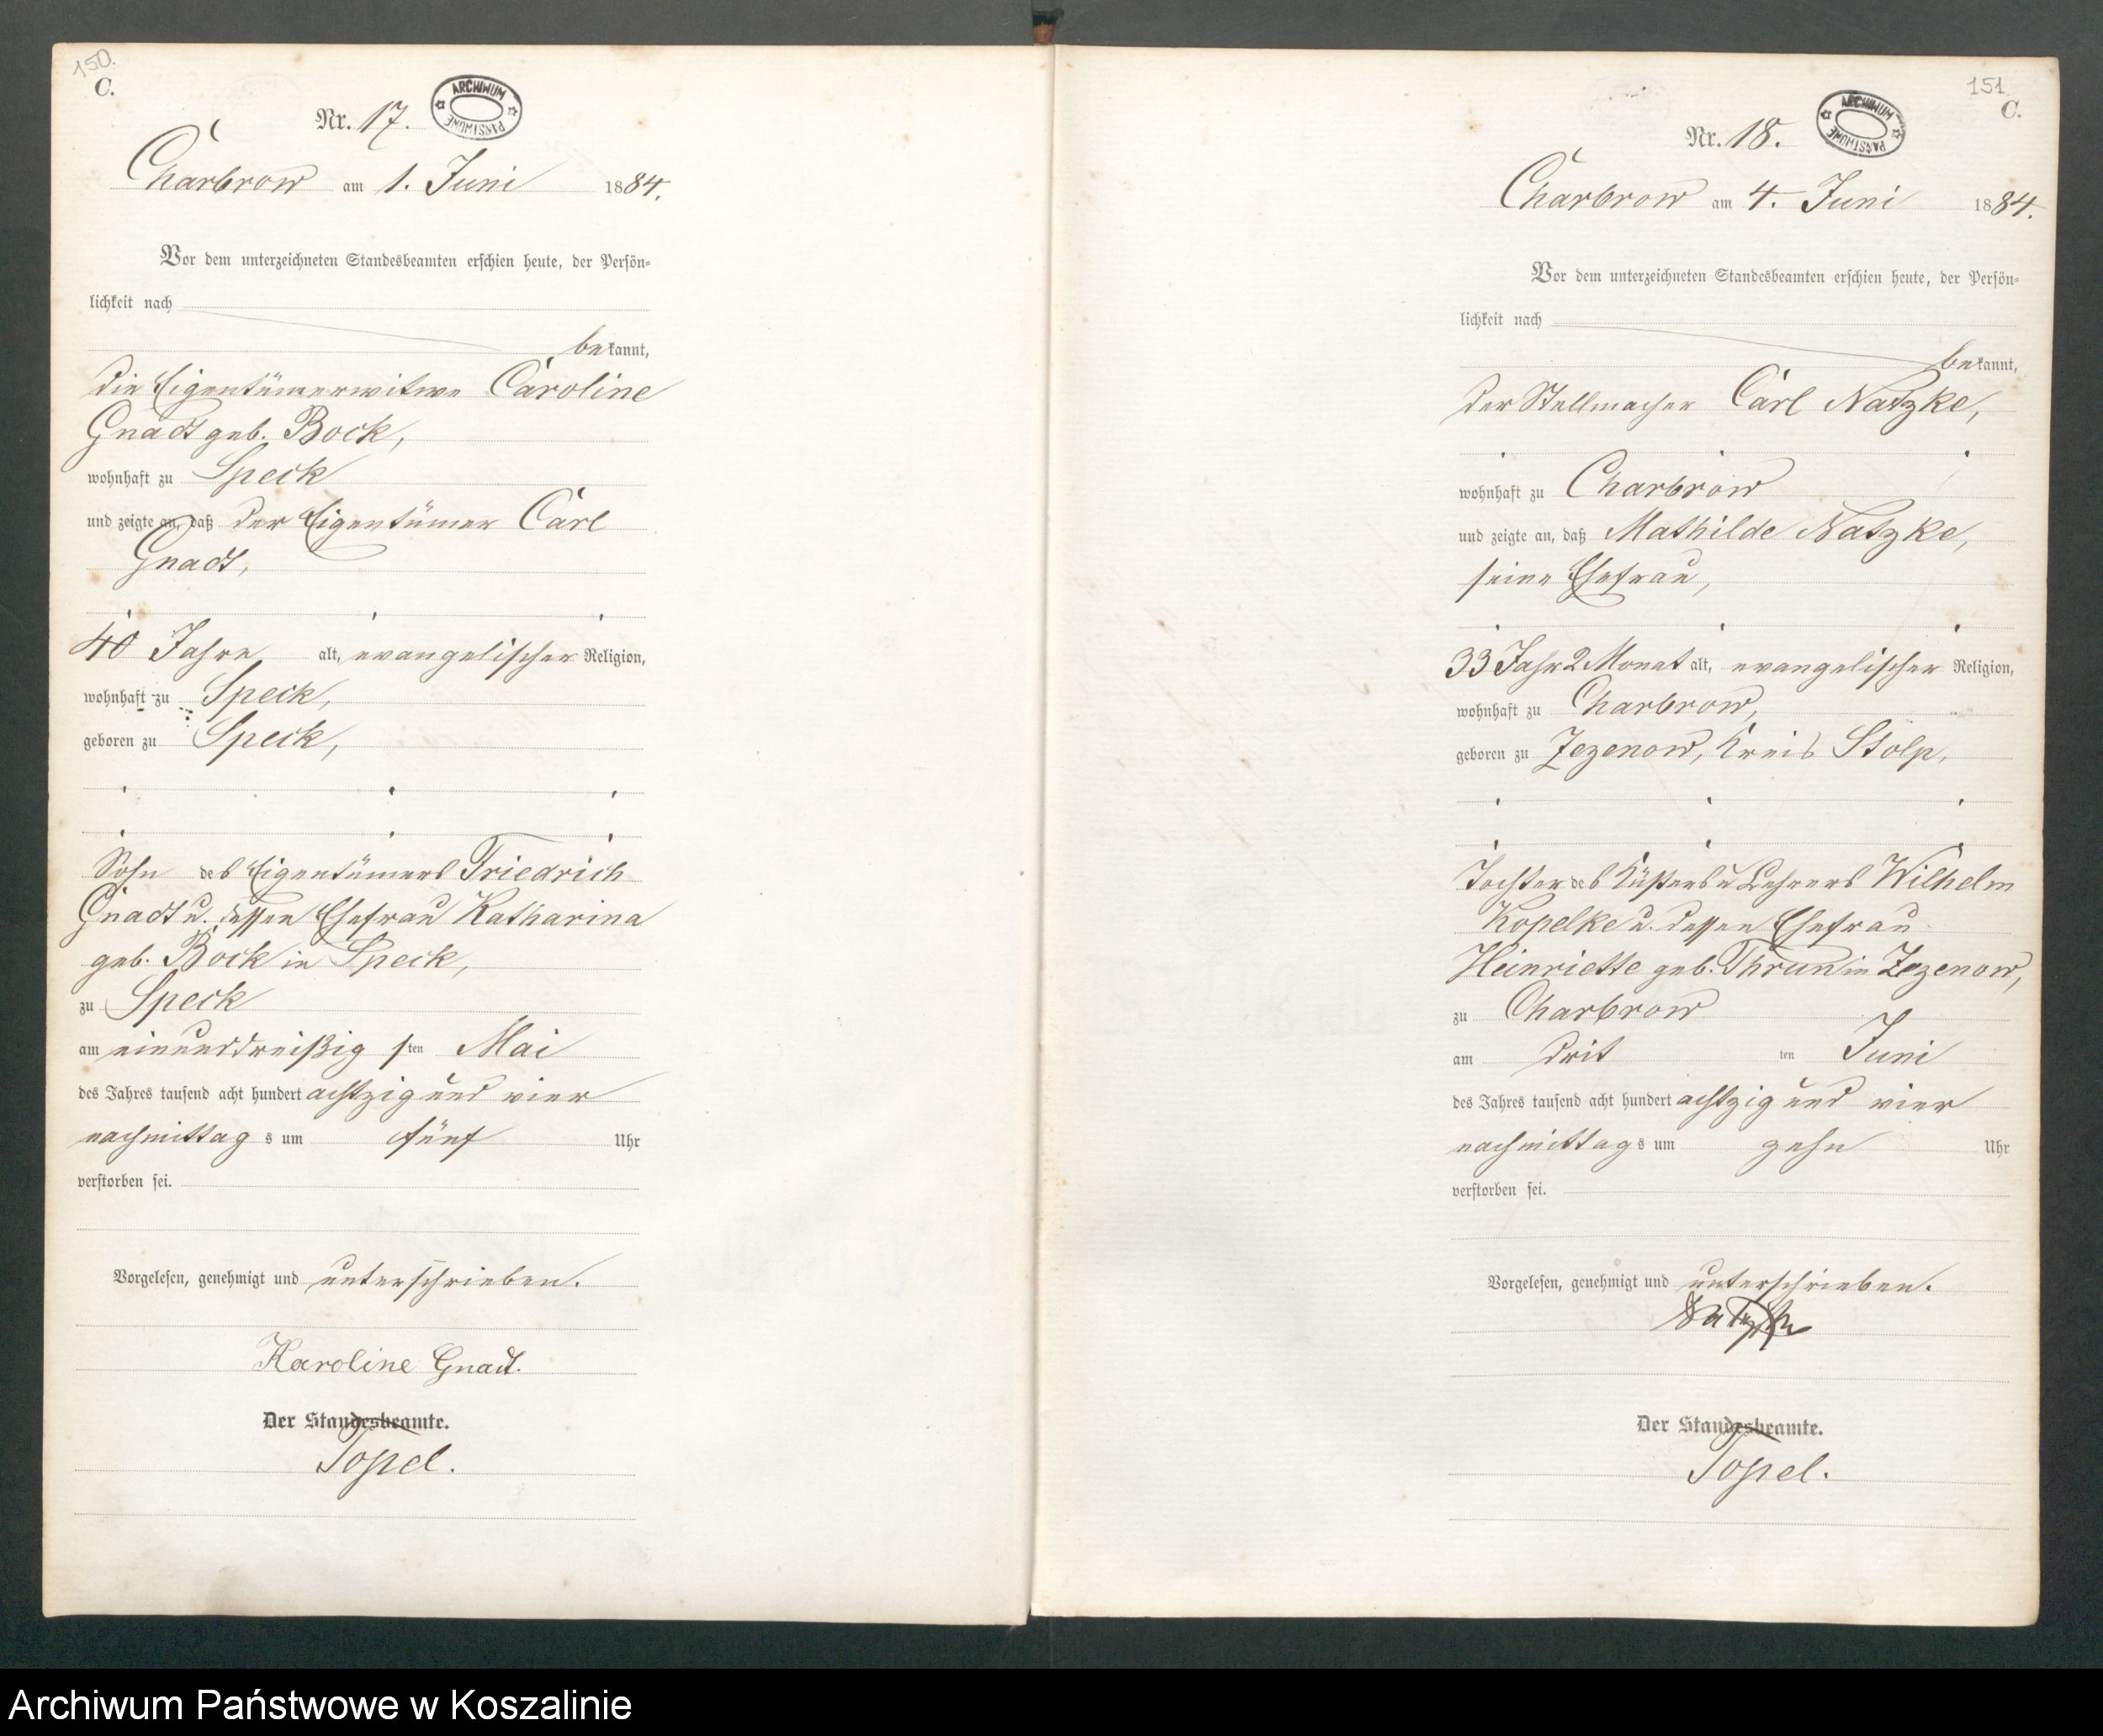 150.
C.
Nr. 17.
ARCHIWUM PAŃSTWOWE
Charbrow am 1. Juni 1884.
Vor dem unterzeichneten Standesbeamten erschien heute, der Persön-
lichkeit nach
bekannt,
die Eigentümerwitwe Caroline
Gnadt geb. Bock,
wohnhaft zu Speck
und zeigte an, daß der Eigentümer Carl
Gnadt,
40 Jahre alt, evangelischer Religion,
wohnhaft zu Speck,
geboren zu Speck,
Sohn des Eigentümers Friedrich
Gnadt u. dessen Ehefrau Katharina
geb. Bock in Speck,
zu Speck
am einunddreißigsten Mai
des Jahres tausend acht hundert achtzig und vier
nachmittags um fünf Uhr
verstorben sei.
Vorgelesen, genehmigt und unterschrieben.
Karoline Gnadt.
Der Standesbeamte.
Topel.
151
C.
Nr. 18.
ARCHIWUM PAŃSTWOWE
Charbrow am 4. Juni 1884.
Vor dem unterzeichneten Standesbeamten erschien heute, der Persön-
lichkeit nach
bekannt,
der Stellmacher Carl Natzke,
wohnhaft zu Charbrow
und zeigte an, daß Mathilde Natzke,
seine Ehefrau,
33 Jahr 2 Monat alt, evangelischer Religion,
wohnhaft zu Charbrow,
geboren zu Zezenow, Kreis Stolp,
Tochter des Küsters u Lehrers Wilhelm
Kopelke u. dessen Ehefrau
Heinriette geb. Thrun in Zezenow,
zu Charbrow
am dritten Juni
des Jahres tausend acht hundert achtzig und vier
nachmittags um zehn Uhr
verstorben sei.
Vorgelesen, genehmigt und unterschrieben.
Natzke
Der Standesbeamte.
Topel.
Archiwum Państwowe w Koszalinie